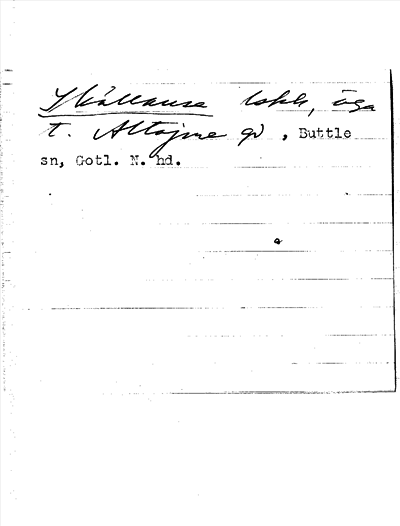 Skällause lokk, äga
t. Altajme gd, Buttle
sn, Gotl. N. hd.